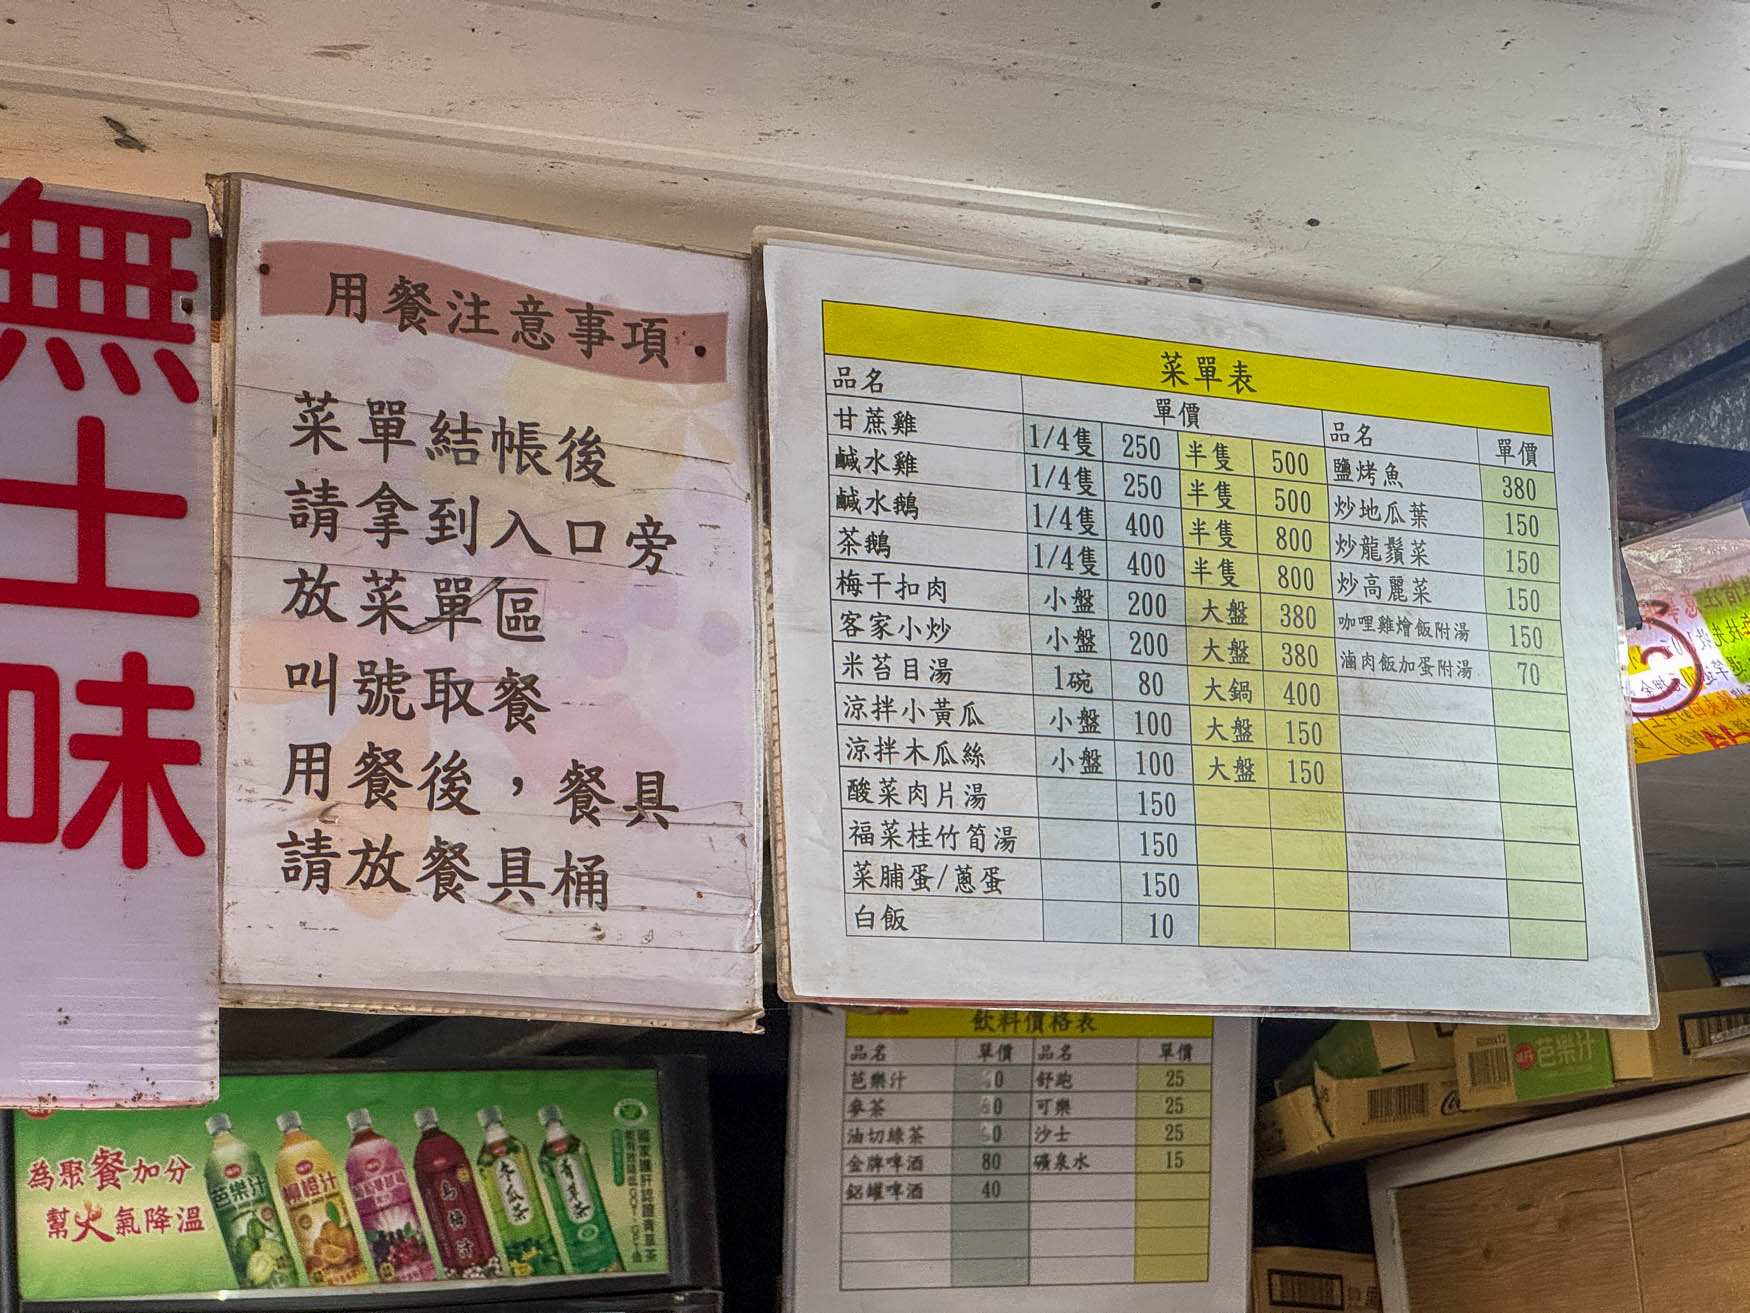 無土味
用餐注意事項
菜單結帳後
請拿到入口旁
放菜單區
叫號取餐
用餐後，餐具
請放餐具桶
菜單表
品名 單價 品名 單價
甘蔗雞 1/4隻 250 半隻 500 鹽烤魚 380
鹹水雞 1/4隻 250 半隻 500 炒地瓜葉 150
鹹水鵝 1/4隻 400 半隻 800 炒龍鬚菜 150
茶鵝 1/4隻 400 半隻 800 炒高麗菜 150
梅干扣肉 小盤 200 大盤 380 咖哩雞燴飯附湯 150
客家小炒 小盤 200 大盤 380 滷肉飯加蛋附湯 70
米苔目湯 1碗 80 大鍋 400
涼拌小黃瓜 小盤 100 大盤 150
涼拌木瓜絲 小盤 100 大盤 150
酸菜肉片湯 150
福菜桂竹筍湯 150
菜脯蛋/蔥蛋 150
白飯 10
飲料價格表
品名 單價 品名 單價
芭樂汁 舒跑 25
麥茶 可樂 25
油切綠茶 沙士 25
金牌啤酒 80 礦泉水 15
鋁罐啤酒 40
為聚餐加分
幫火氣降溫
芭樂汁
柳橙汁
烏梅汁
冬瓜茶
青草茶
芭樂汁